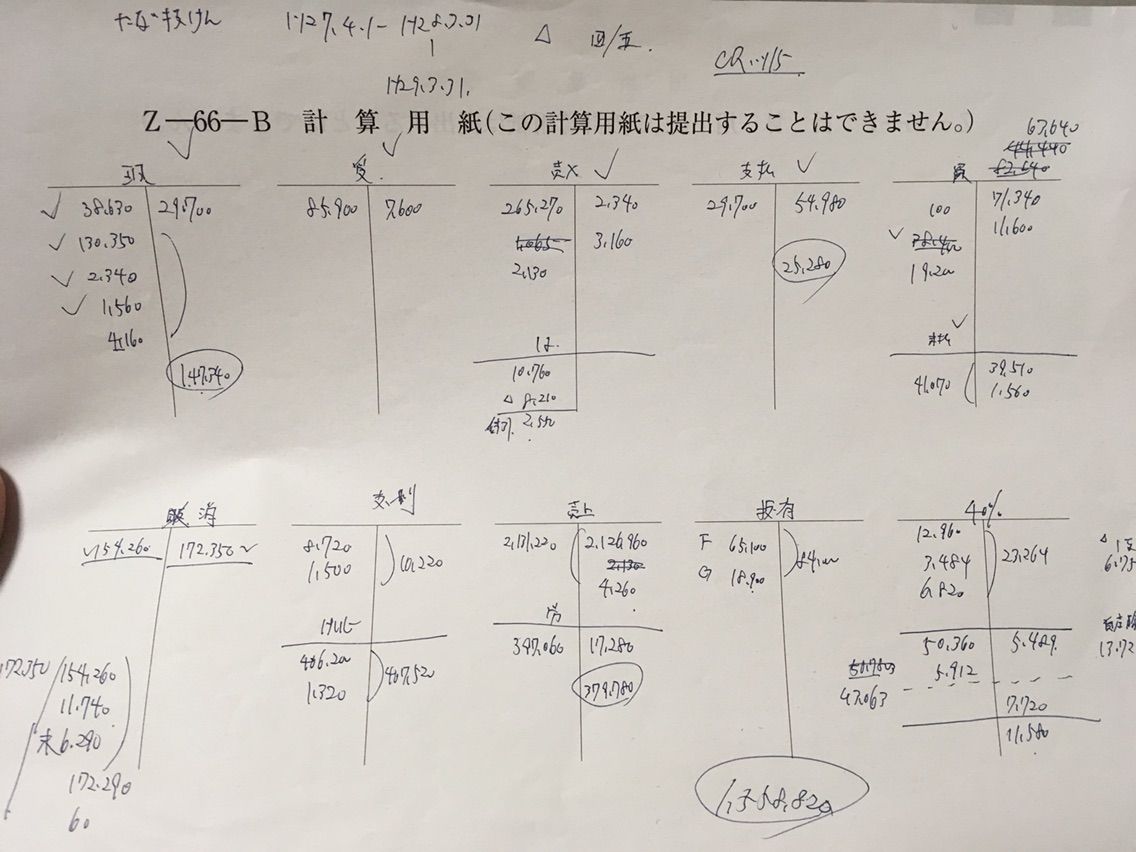 H27.4.1- H28.3.31
H29.3.31.
△ 回/五.
CR:115
Z―66―B 計算用紙(この計算用紙は提出することはできません。)
67,640
82,640
現
38,630 29,700
130,350
2,340
1,560
4,160
147,340
受.
85,900 7,600
売×
265,270 2,340
1,065 3,160
2,130
10,760
△ 8,210
2,550
支払
29,700 54,980
25,280
買
100 71,340
11,600
19,200
未払
41,070 39,510
1,560
仮消
154,260 172,350
172,350 154,260
11,740
未 6,290
172,290
60
支・利
8,720 10,220
1,500
406,200 407,520
1,320
売上
2,131,220 2,126,960
2,130
4,260
労
397,060 17,280
379,780
投有
F 65,100 84,000
G 18,900
1,358,820
40%
12,960 23,264
3,484
6,820
50,360 5,489
5,912
47,063
7,720
11,580